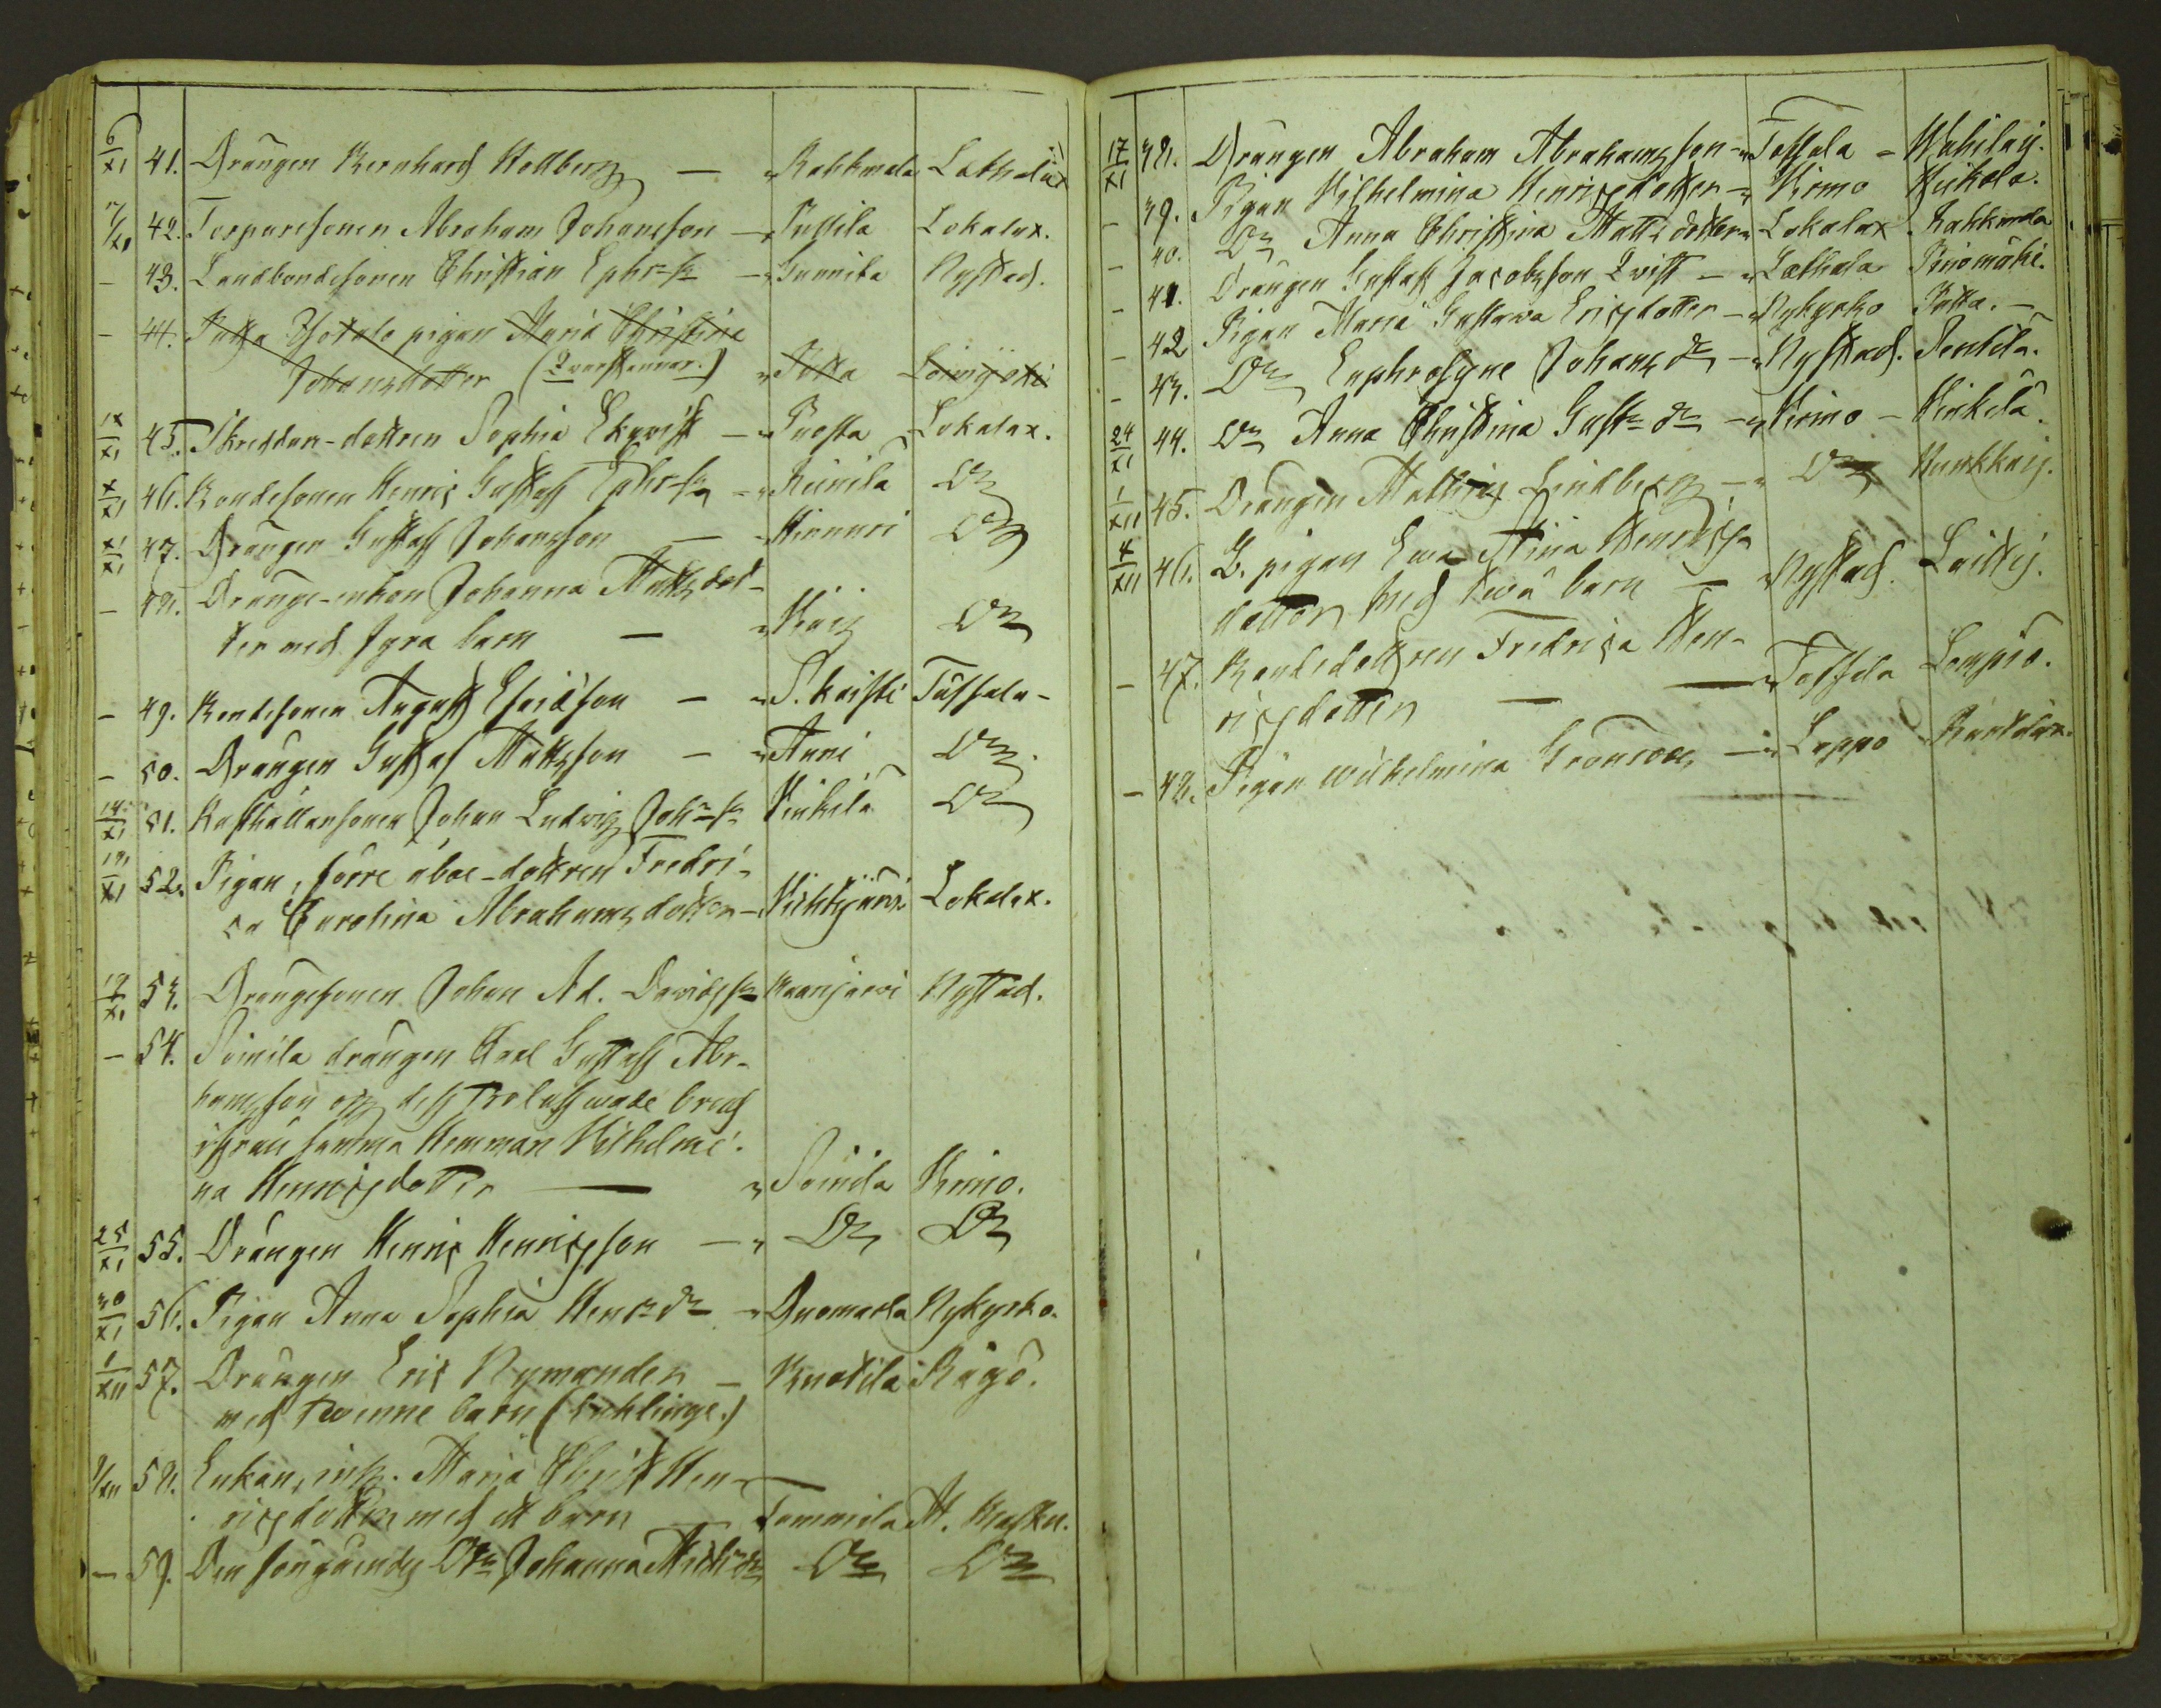 6/XI 41. Drängen Bernhard Hollberg — " Rahkmala Lethala
7/XI 42. Torparesonen Abraham Johansson — " Puttila Lokalax.
— 43. Landbondesonen Christian Ephrs — " Gunnila Nystad.
— 44. pigan Maria Christina
Johansdotter (Qvarstannar.) " Potta
IX/XI 45. Skreddare-dottren Sophia Ekqvist — " Lokalax.
X/XI 46. Bondesonen Henric Gustaf Ephrs — " Reinilä Do
XI/XI 47. Drängen Gustaf Johansson — " Hinnuri Do
— 48. Dränge-enkan Johanna Mattsdot-
ter med fyra barn — " Do
— 49. Bondesonen August Esaiasson — " Töfsala —
— 50. Drängen Gustaf Mattsson — " Anni Do
14/XI 51. Rusthållaresonen Johan Ludvig Johss Heikilä Do
18/XI 52. Pigan, förre åboe-dottren Fredri-
ca Carolina Abrahamsdotter — Vichtjärvi Lokalax.
19/XI 53. Drängesonen Johan Ad. Davidss Haanjärvi Nystad.
— 54. Soinila drängen Carl Gustaf Abr-
hamsson och dess Trolofwade brud
ifrån samma Hemman Vilhelmi-
na Henricsdotter — " Soinila Virmo.
25/XI 55. Drängen Henric Henricsson — " Do Do
30/XI 56. Pigan Anna Sophia Henrsdr — " Nykyrko.
1/XII 57. Drängen Eric Nymander — Knotila Rägö.
med Twenne barn
8/XII 58. Enkan, Maria Christ Hen-
ricsdotter med ett barn — Tammila
— 59. Den Johanna Do Do
17/XI 38. Drängen Abraham Abrahamsson — " Töfsala — Wähilaij.
— 39. Pigan Vilhelmina Henricsdotter — " Virmo Heikola.
— 40. Do Anna Christina Mattsdotter " Lokalax Rahkmala
— 41. Drängen Gustaf Jacobsson Qvist — " Lethala Pinomäki.
— 42 Pigan Maria Gustawa Ericsdotter — " Nykyrko Potta. —
— 43. Do Euphrosyne Johans dr — " Nystad. Pentilä.
24/XI 44. Do Anna Christina Gusts dr — " Virmo — Heikilä.
1/XII 45. Drängen Matthias Lindberg — " Do Kunkkaij.
4/XII 46. G. pigan Ewa Stina Henrics-
dotter med twå barn — " Nystad. Laittij.
— 47. Bondedottren Fredrica Hen-
ricsdotter — — " Töfsala Lempiö.
— 48. Pigan Wilhelmina Grönroos — " Lappo